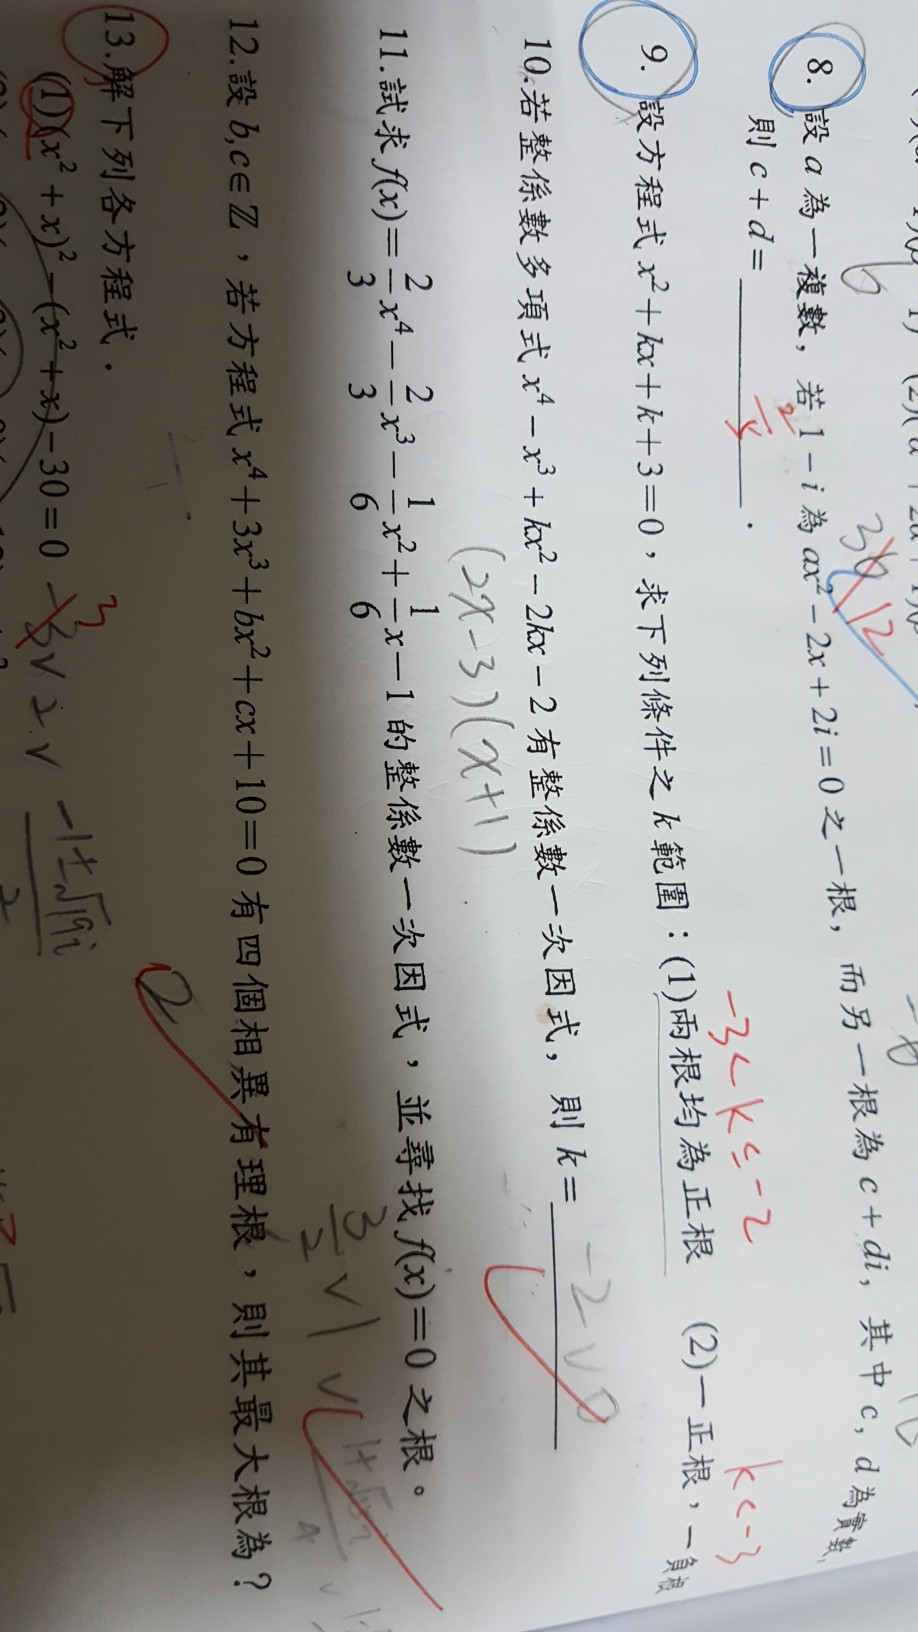 8. 設 a 為一複數，若 1－i 為 ax²－2x＋2i＝0 之一根，而另一根為 c＋di，其中 c，d 為實數，
則 c＋d＝________．
9. 設方程式 x²＋kx＋k＋3＝0，求下列條件之 k 範圍：(1)兩根均為正根　(2)一正根，一負根
-3<k≤-2
k<-3
10.若整係數多項式 x⁴－x³＋kx²－2kx－2 有整係數一次因式，則 k＝________
-2∨0
(2x-3)(x+1)
11.試求 f(x)＝2/3x⁴－2/3x³－1/6x²＋1/6x－1 的整係數一次因式，並尋找 f(x)＝0 之根。
3/2∨
12.設 b,c∈ℤ，若方程式 x⁴＋3x³＋bx²＋cx＋10＝0 有四個相異有理根，則其最大根為？
2
13.解下列各方程式．
(1)(x²＋x)²－(x²＋x)－30＝0
-3∨2∨ (-1±√19i)/2